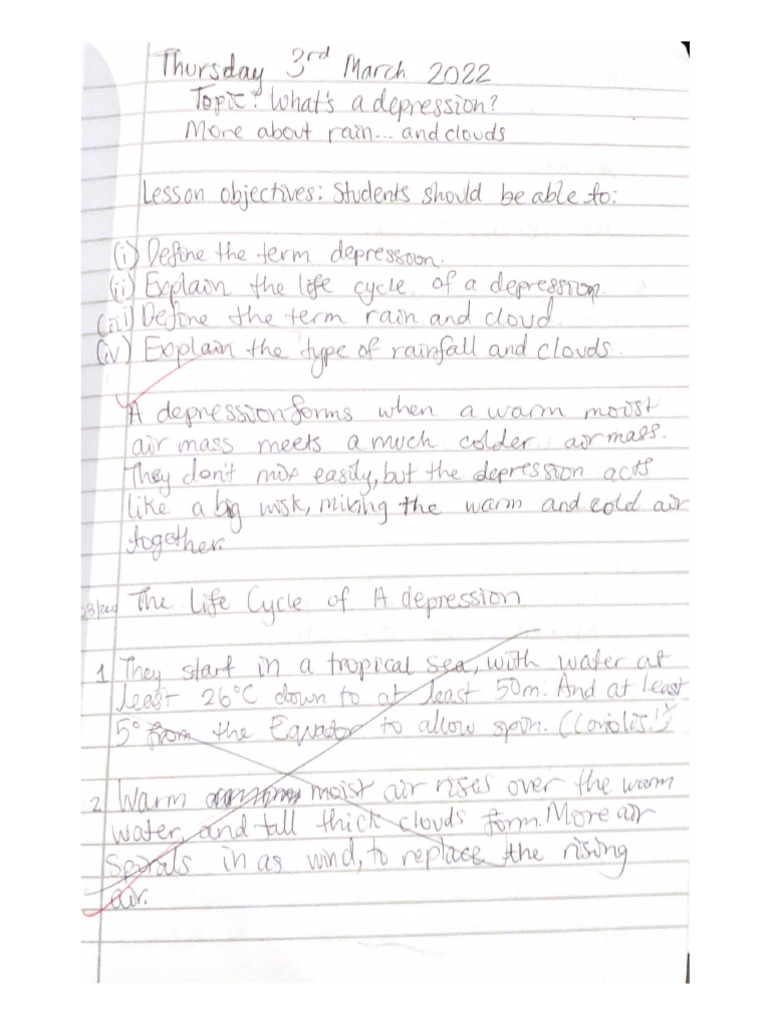 Thursday 3rd March 2022
Topic: What's a depression?
More about rain... and clouds
Lesson objectives: Students should be able to:
(i) Define the term depression.
(ii) Explain the life cycle of a depression.
(iii) Define the term rain and cloud.
(iv) Explain the type of rainfall and clouds.
A depression forms when a warm moist
air mass meets a much colder air mass.
They don't mix easily, but the depression acts
like a big wisk, mixing the warm and cold air
together.
The Life Cycle of A depression
1 They start in a tropical sea, with water at
least 26°C down to at least 50m. And at least
5° from the Equator to allow spin. (Coriolis!)
2 Warm moist air rises over the warm
water, and tall thick clouds form. More air
spirals in as wind, to replace the rising
air.